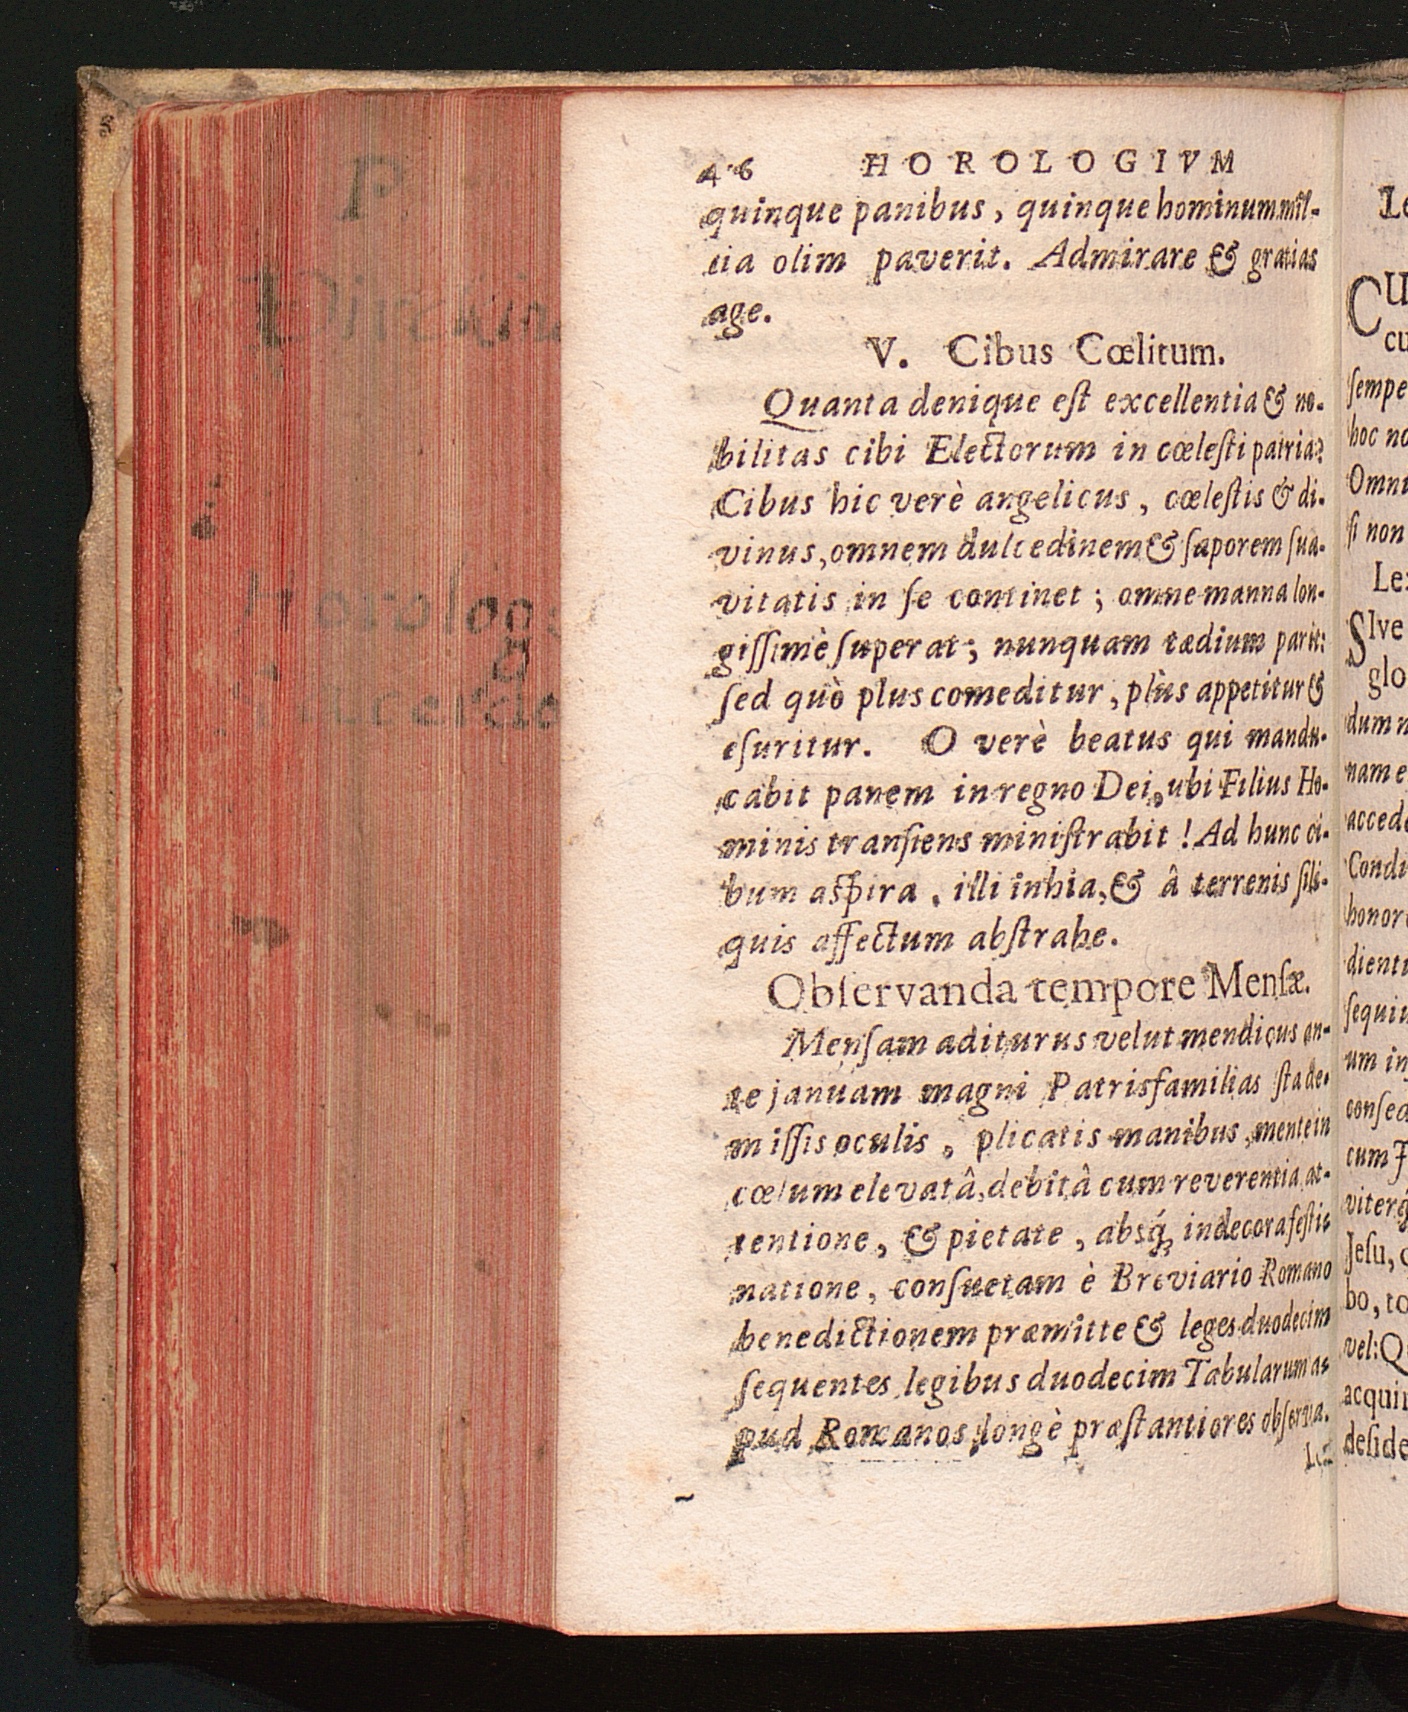 46 HOROLOGIVM
quinque panibus, quinque hominum mil-
lia olim paverit. Admirare & gratias
age.
V. Cibus Cœlitum.
Quanta denique est excellentia & no-
bilitas cibi Electorum in cœlesti patria?
Cibus hic verè angelicus, cœlestis & di-
vinus, omnem dulcedinem & saporem sua-
vitatis in se continet; omne manna lon-
gissimè superat; nunquam tædium parit:
sed quò plus comeditur, plùs appetitur &
esuritur. O verè beatus qui mandu-
cabit panem in regno Dei, ubi Filius Ho-
minis transiens ministrabit! Ad hunc ci-
bum aspira, illi inhia, & â terrenis sili-
quis affectum abstrahe.
Observanda tempore Mensæ.
Mensam aditurus velut mendicus an-
te januam magni Patrisfamilias sta de-
missis oculis, plicatis manibus, mente in
cœlum elevatâ, debitâ cum reverentia at-
tentione, & pietate, absq́; indecora festi-
natione, consuetam è Breviario Romano
benedictionem præmitte & leges duodecim
sequentes legibus duodecim Tabularum a-
pud Romanos longè præstantiores observa.
Cu
cu
sempe
hoc no
Omni
si non
SIve
glo
dum n
nam e
accede
Condi
honor
dienti
sequiu
um in
consea
cum J
viterq́
Jesu, c
bo, to
vel: Q
acquir
deside
P.
Horolog